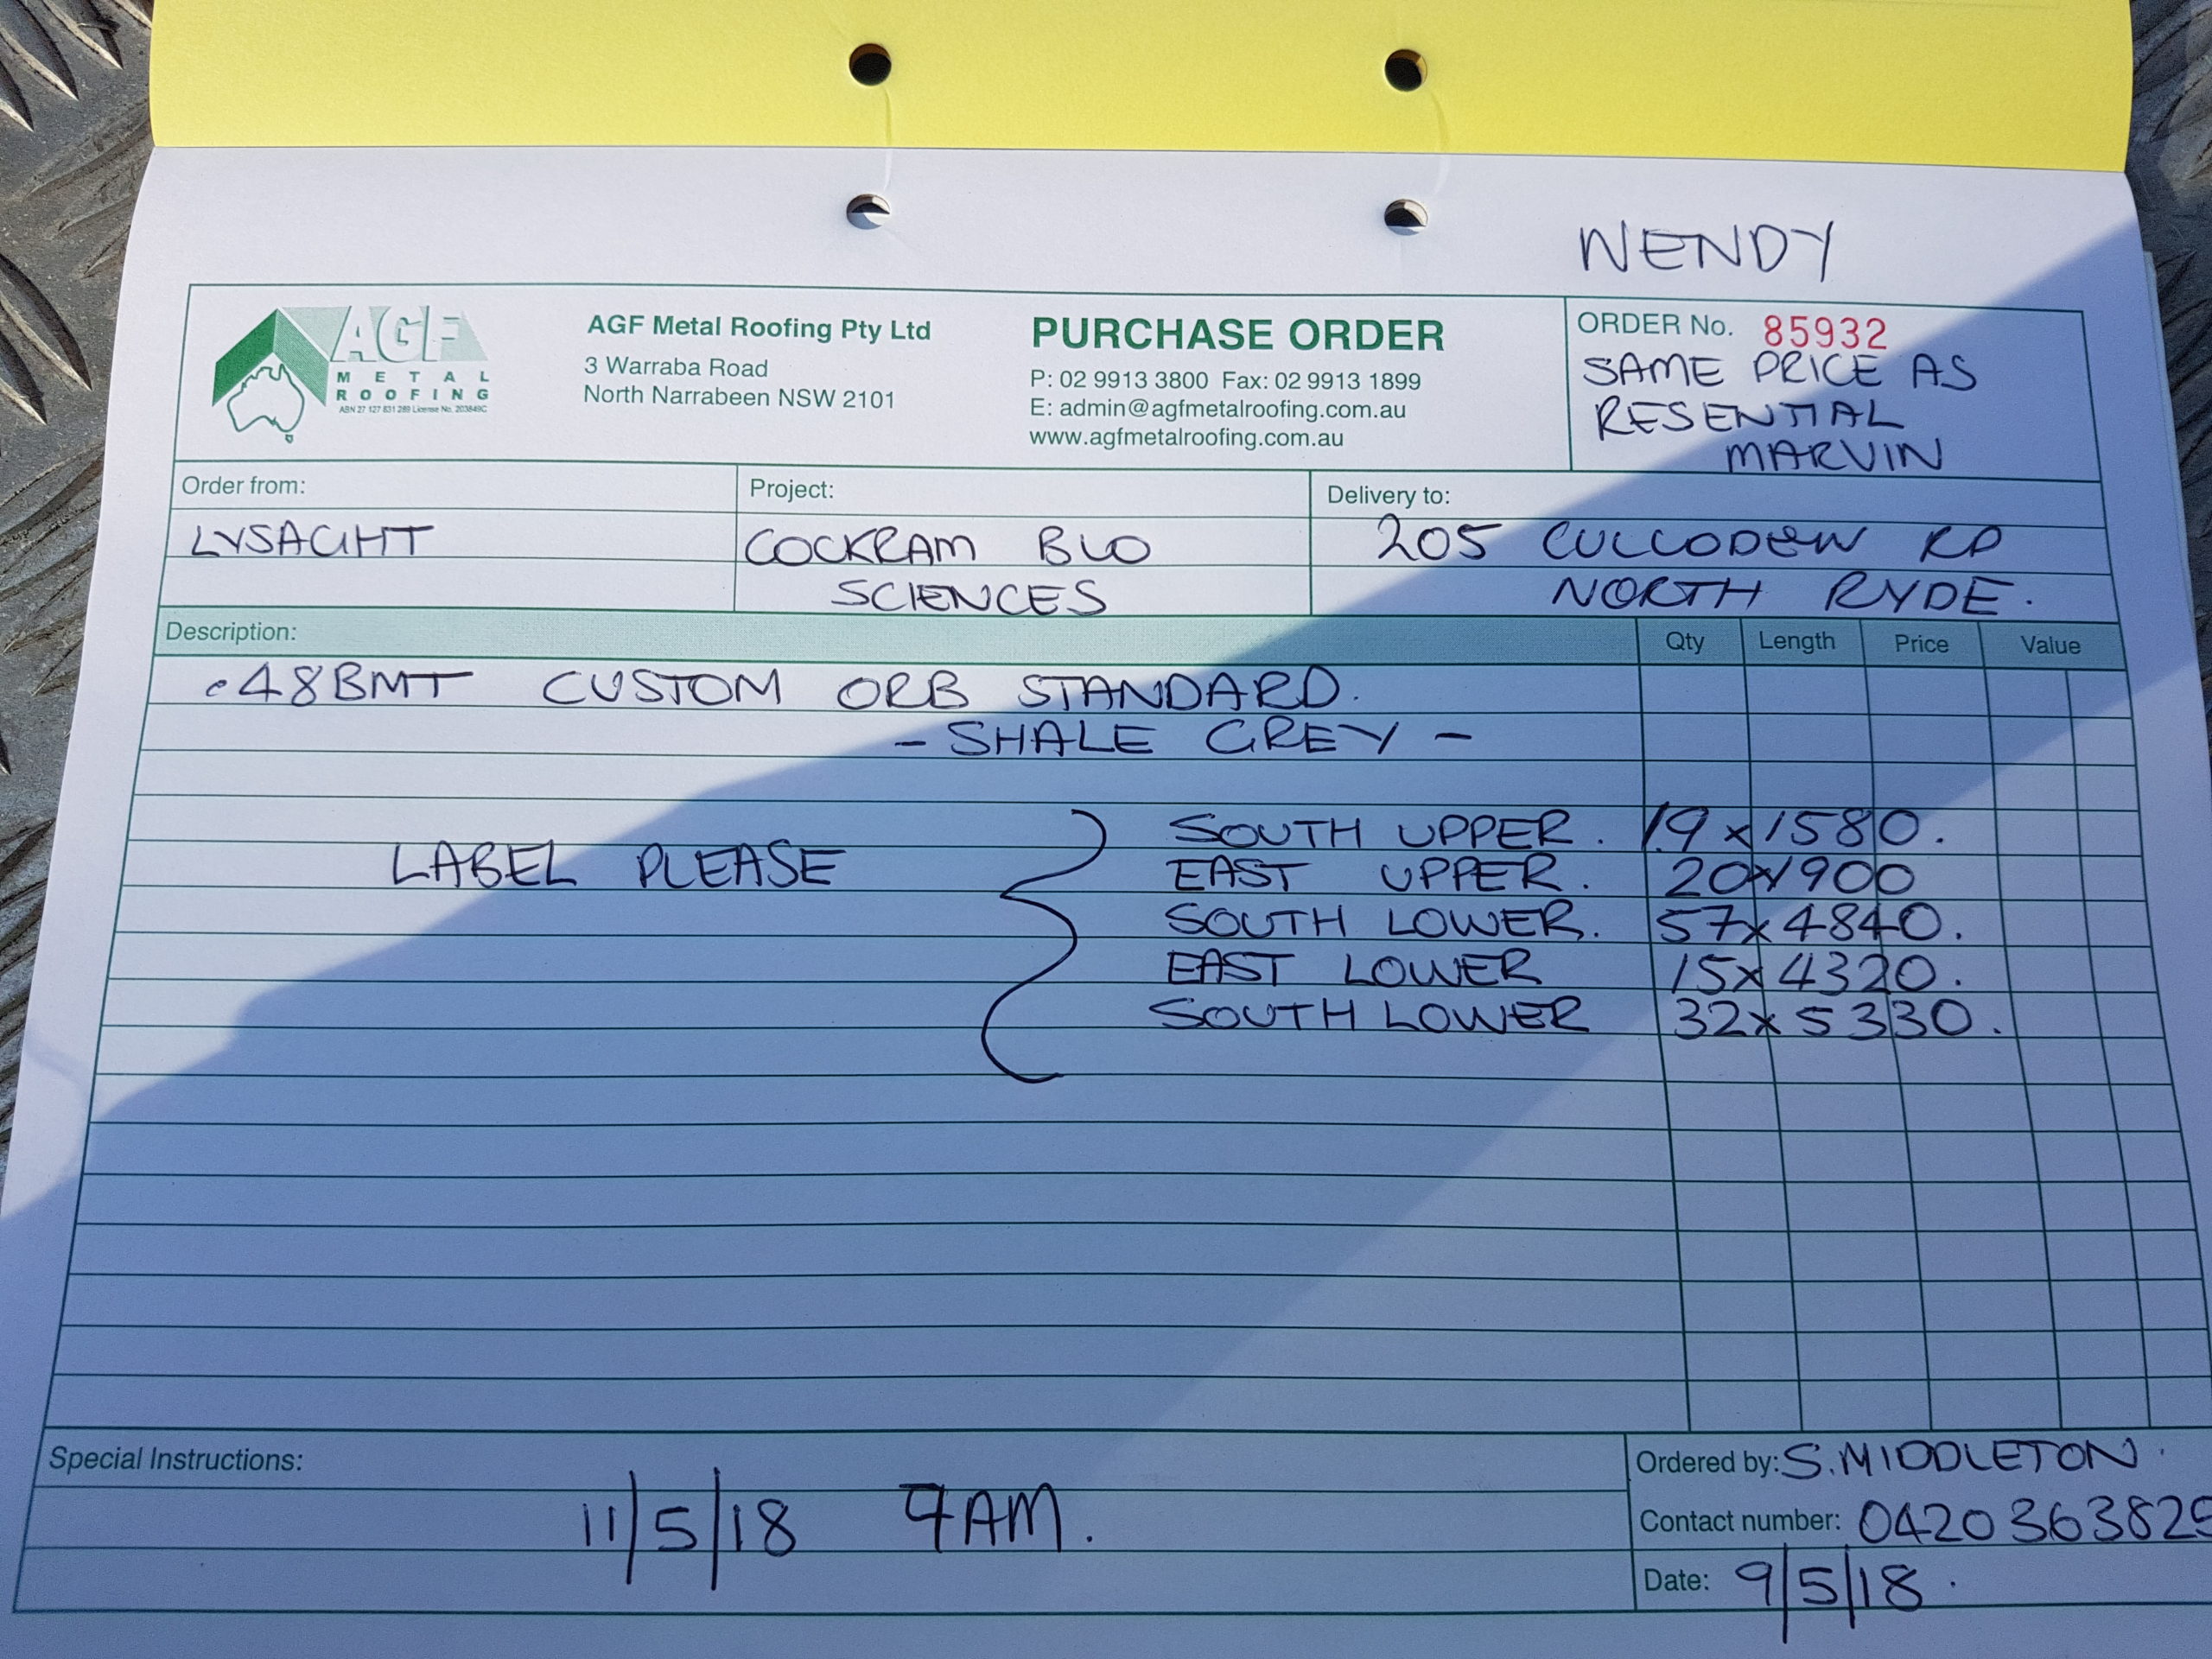 WENDY
AGF
METAL
ROOFING
ABN 27 127 831 289 License No. 203849C
AGF Metal Roofing Pty Ltd
3 Warraba Road
North Narrabeen NSW 2101
PURCHASE ORDER
P: 02 9913 3800 Fax: 02 9913 1899
E: admin@agfmetalroofing.com.au
www.agfmetalroofing.com.au
ORDER No. 85932
SAME PRICE AS
RESENTIAL
MARVIN
Order from:
LYSAGHT
Project:
COCKRAM BIO
SCIENCES
Delivery to:
205 CULLODEN RD
NORTH RYDE.
Description: Qty Length Price Value
.48BMT CUSTOM ORB STANDARD.
- SHALE GREY -
LABEL PLEASE
SOUTH UPPER. 19 x 1580.
EAST UPPER. 20 x 900
SOUTH LOWER. 57 x 4840.
EAST LOWER 15 x 4320.
SOUTH LOWER 32 x 5330.
Special Instructions:
11/5/18 7AM.
Ordered by: S. MIDDLETON.
Contact number:
Date: 9/5/18.